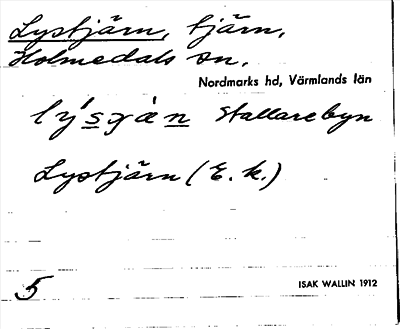 Lystjärn, tjärn,
Holmedals sn.
Nordmarks hd, Värmlands län
lýsɟæn Stallarebyn
Lystjärn (E. k.)
5
ISAK WALLIN 1912